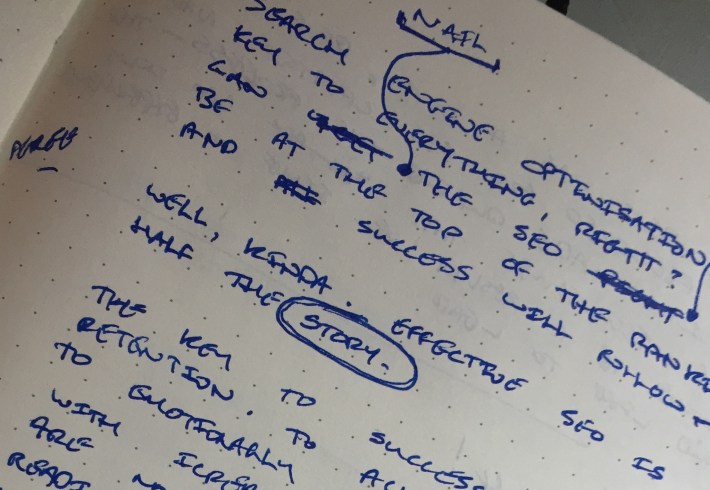 NAIL
SEARCH ENGINE OPTIMISATION
KEY TO EVERYTHING, RIGHT?
CAN THE SEO
BE AT THE TOP OF THE RANKI
AND SUCCESS WILL FOLLOW
WELL, KINDA. EFFECTIVE SEO IS
HALF THE STORY.
THE KEY TO SUCCESS
RETENTION. TO
TO EMOTIONALLY
WITH
ARE